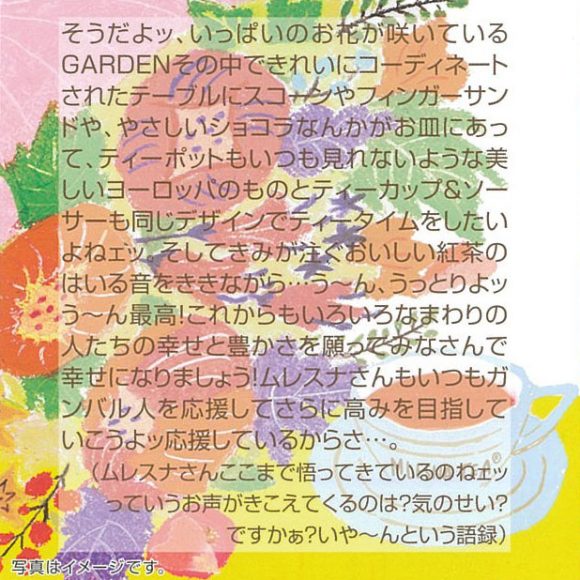 そうだよッ、いっぱいのお花が咲いている
GARDENその中できれいにコーディネート
されたテーブルにスコーンやフィンガーサン
ドや、やさしいショコラなんかがお皿にあっ
て、ティーポットもいつも見れないような美
しいヨーロッパのものとティーカップ&ソー
サーも同じデザインでティータイムをしたい
よねェッ。そしてきみが注ぐおいしい紅茶の
はいる音をききながら…う〜ん、うっとりよッ
う〜ん最高!これからもいろいろなまわりの
人たちの幸せと豊かさを願ってみなさんで
幸せになりましょう!ムレスナさんもいつもガ
ンバル人を応援してさらに高みを目指して
いこうよッ応援しているからさ…。
(ムレスナさんここまで悟ってきているのねェッ
っていうお声がきこえてくるのは?気のせい?
ですかぁ?いや〜んという語録)
写真はイメージです。